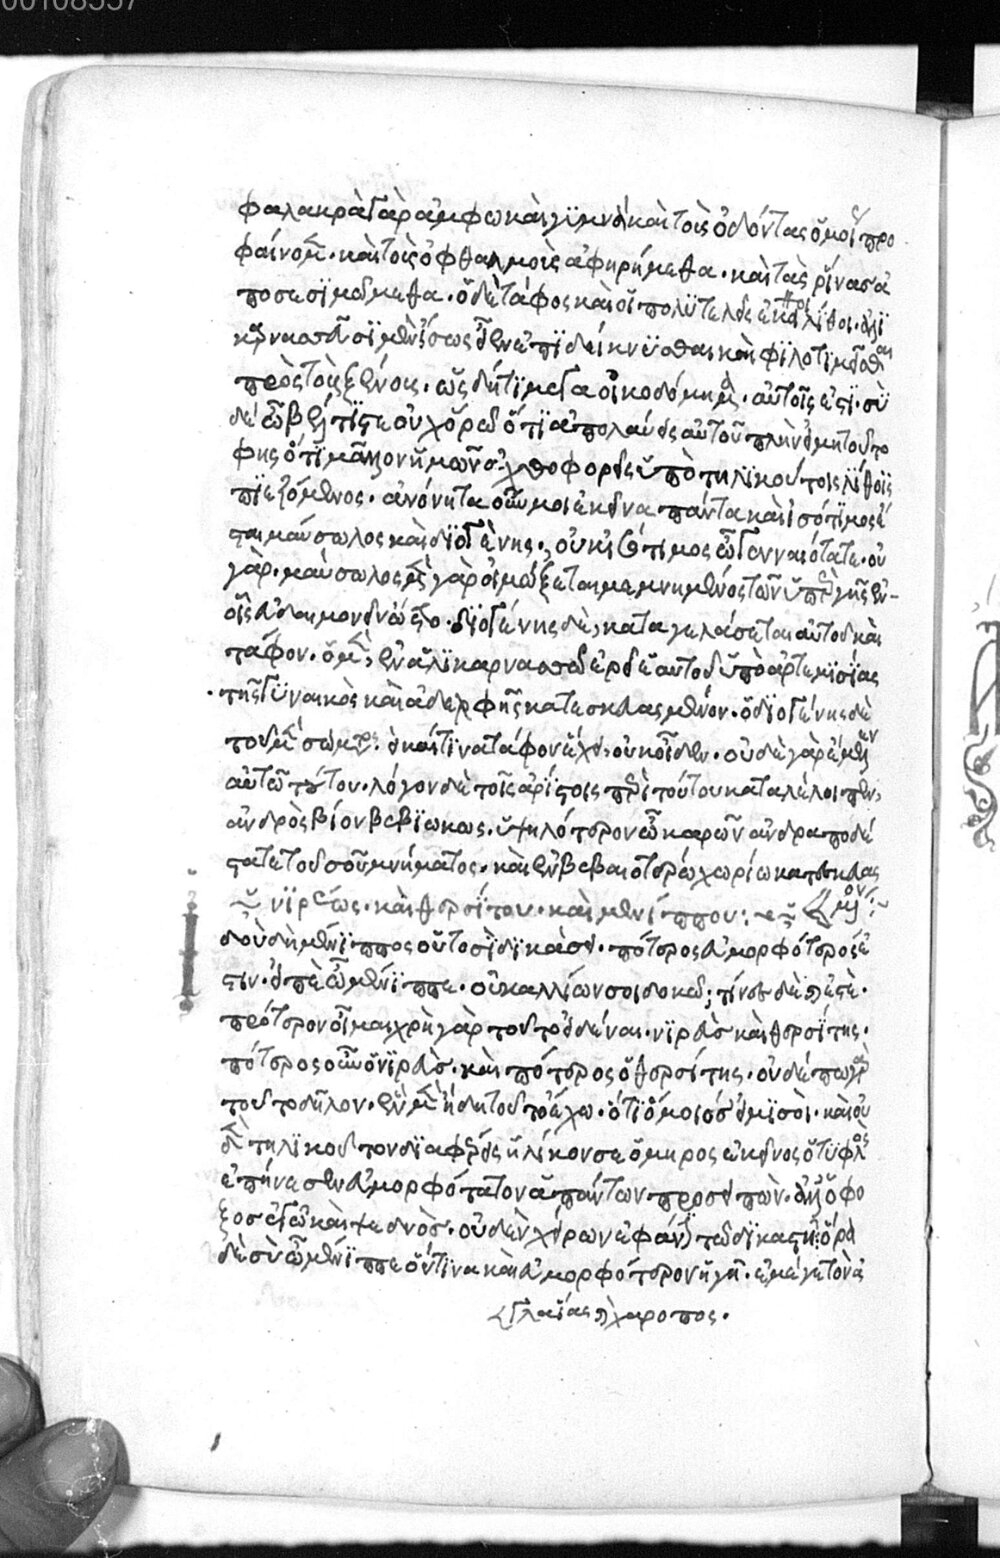 00108557
φαλακρὰ γὰρ ἄμφω καὶ γϋμνὰ καὶ τοὺς ὀδόντας ὁμοί προ
φαίνομ̅. καὶ τοὺς ὀφθαλμοὺς ἀφηρήμεθα. καὶ τὰς ρῖνας ἀ
ποσεσϊμώμεθα. ὁ δὲ τάφος καὶ οἱ πολϋτελεῖς ἐκεῖνοι λίθοι. ἁλϊ
καρνασεῦσϊ μὲν ἴσως εἶεν ἐπϊδείκνϋσθαι καὶ φϊλοτιμεῖσθαι
πρὸς τοὺς ξένους. ὡς δή τϊ μέγα οἰκοδόμημα. αὐτοῖς ἐστϊ. σὺ
δὲ ὦ βέλτϊστε οὐχ ὁρῶ ὅ τϊ ἀπολαύεις αὐτοῦ πλὴν εἰ μὴ τοῦτο
φῆς ὅτϊ μᾶλλον ἡμῶν ἀχθοφορεῖς ὑπὸ τηλϊκούτοις λίθοϊς
πϊεζόμενος. ἀνόνητα οὖν μοι ἐκεῖνα πάντα καὶ ἰσότϊμος ἔ
σται μαύσωλος καὶ διογένης. οὐκ ἰσότιμος ὦ γενναιότατε. οὐ
γάρ. μαύσωλος μὲν γὰρ οἰμώξεται μεμνημένος τῶν ὑπὲρ γῆς ἐν
οἷς εὐδαιμονεῖν ᾤετο. διογένης δὲ, καταγελάσεται αὐτοῦ καὶ
τάφον. ὁ μὲν, ἐν ἁλϊκαρνασσῷ ἐρεῖ ἑαυτοῦ ὑπὸ ἀρτεμϊσίας
τῆς γϋναικὸς καὶ ἀδελφῆς κατεσκευασμένον. ὁ διογένης δὲ
τοῦ μὲν σώματος. εἰ καί τϊνα τάφον ἔχει, οὐκ οἶδεν. οὐδὲ γὰρ ἔμελεν
αὐτῶ τούτου. λόγον δὲ τοῖς ἀρίστοις περὶ τούτου καταλέλοιπεν,
ἀνδρὸς βίον βεβϊωκὼς. ὑψηλότερον ὦ καρῶν ἀνδραποδέ
στατε τοῦ σοῦ μνήματος. καὶ ἐν βεβαιοτέρω χωρίω κατεσκευασ
νϊρέως. καὶ θερσίτου. καὶ μενίππου:
ϊδοὺ δὴ μένϊππος οὑτοσὶ δϊκάσει. πότερος εὐμορφότερός ἐ
στιν. εἰπὲ ὦ μένϊππε. οὐ καλλίων σοι δοκῶ; τίνες δὲ ἐστὲ.
πρότερον οἶμαι χρὴ γὰρ τοῦτο εἰδέναι. νϊρεὺς καὶ θερσίτης.
πότερος οὖν ὁ νϊρεὺς. καὶ πότερος ὁ θερσίτης. οὐδέπω γὰρ
τοῦτο δῆλον. ἓν μὲν ἤδη τοῦτο ἔχω. ὅτϊ ὅμοιός εἰμϊ σοὶ. καὶ οὐ
δὲν τηλϊκοῦτον δϊαφέρεις ἡλίκον σε ὅμηρος ἐκεῖνος ὁ τϋφλὸς
ἐπήνεσεν εὐμορφότατον ἁπάντων προσειπών. ἀλλ' ὁ φο
ξὸς ἐγὼ καὶ ψεδνὸς. οὐδὲν χείρων ἐφάνην τῶ δϊκαστῆ. ὅρα
δὲ σὺ ὦ μένϊππε ὅντινα καὶ εὐμορφότερον ἡγῆ. ἐμέ γε τὸν ἀ
γλαΐας χάροπος.